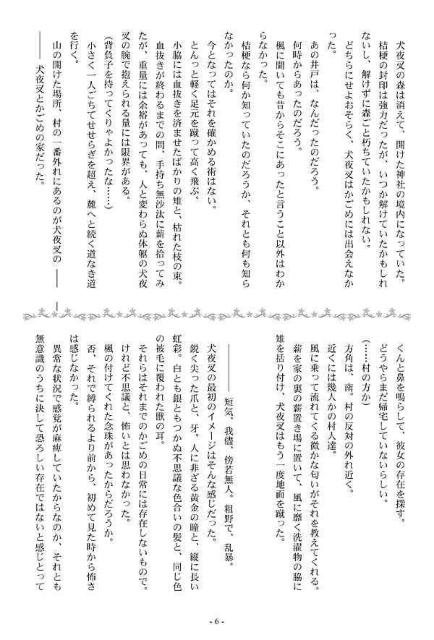 犬夜叉の森は消えて、開けた神社の境内になっていた。
桔梗の封印は強力だったが、いつか解けていたかもしれ
ないし、解けずに森ごと朽ちていたかもしれない。
どちらにせよおそらく、犬夜叉はかごめには出会えなか
った。
あの井戸は、なんだったのだろう。
何時からあったのだろう。
楓に聞いても昔からそこにあったと言うこと以外はわか
らなかった。
桔梗なら何か知っていたのだろうか、それとも何も知ら
なかったのか。
今となってはそれを確かめる術はない。
とんっと軽く足元を蹴って高く飛ぶ。
小脇には血抜きを済ませたばかりの雉と、枯れた枝の束。
血抜きが終わるまでの間、手持ち無沙汰に薪を拾ってみ
たが、重量には余裕があっても、人と変わらぬ体躯の犬夜
叉の腕で抱えられる量には限界がある。
(背負子を持ってくりゃよかったな……)
小さく一人ごちてせせらぎを超え、麓へと続く道なき道
を行く。
山の開けた場所、村の一番外れにあるのが犬夜叉の ――
―― 犬夜叉とかごめの家だった。
くんと鼻を鳴らして、彼女の存在を探す。
どうやらまだ帰宅していないらしい。
(……村の方か)
方角は、南。村の反対の外れ近く。
近くには幾人かの村人達。
風に乗って流れてくる微かな匂いがそれを教えてくれる。
薪を家の裏の薪置き場に置いて、風に靡く洗濯物の脇に
雉を括り付け、犬夜叉はもう一度地面を蹴った。
―――― 短気、我儘、傍若無人。粗野で、乱暴。
犬夜叉の最初のイメージはそんな感じだった。
鋭く尖った爪と、牙、人に非ざる黄金の瞳と、縦に長い
虹彩。白とも銀ともつかぬ不思議な色合いの髪と、同じ色
の被毛に覆われた獣の耳。
それらはそれまでのかごめの日常には存在しないもので。
けれど不思議と、怖いとは思わなかった。
楓の付けてくれた念珠があったからだろうか。
否、それで縛られるより前から、初めて見た時から怖さ
は感じなかった。
異常な状況で感覚が麻痺していたからなのか、それとも
無意識のうちに決して恐ろしい存在ではないと感じとって
- 6 -